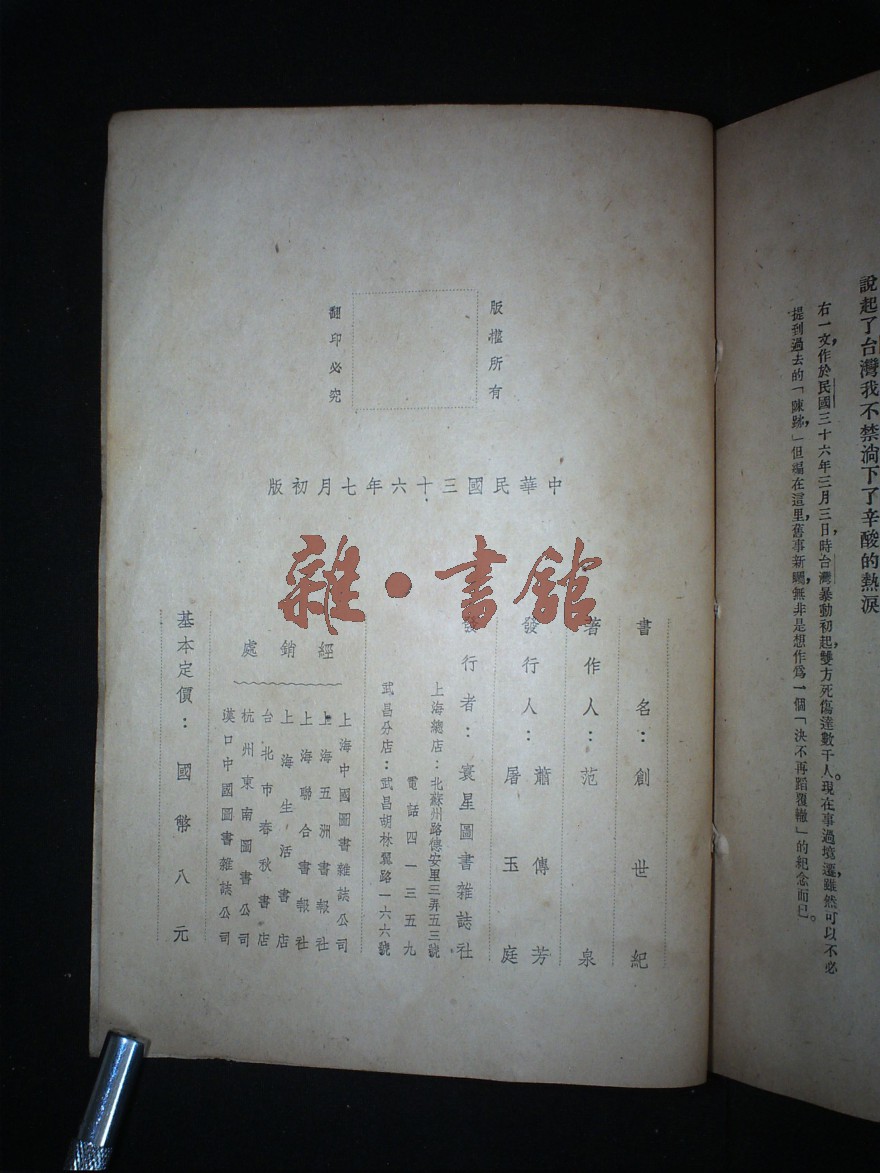 說起了台灣我不禁淌下了辛酸的熱淚
右一文,作於民國三十六年三月三日,時台灣暴動初起,雙方死傷達數千人。現在事過境遷,雖然可以不必
提到過去的「陳跡,」但編在這里舊事新曬,無非是想作爲一個「決不再蹈覆轍」的紀念而已。
版權所有
翻印必究
中華民國三十六年七月初版
雜·書館
書名:創世紀
著作人:范泉
發行人:蕭傳芳
屠玉庭
發行者:寰星圖書雜誌社
上海總店:北蘇州路德安里三弄五三號
電話四一三五九
武昌分店:武昌胡林翼路一六六號
經銷處
上海中國圖書雜誌公司
上海五洲書報社
上海聯合書報社
上海生活書店
台北市春秋書店
杭州東南圖書公司
漢口中國圖書雜誌公司
基本定價:國幣八元